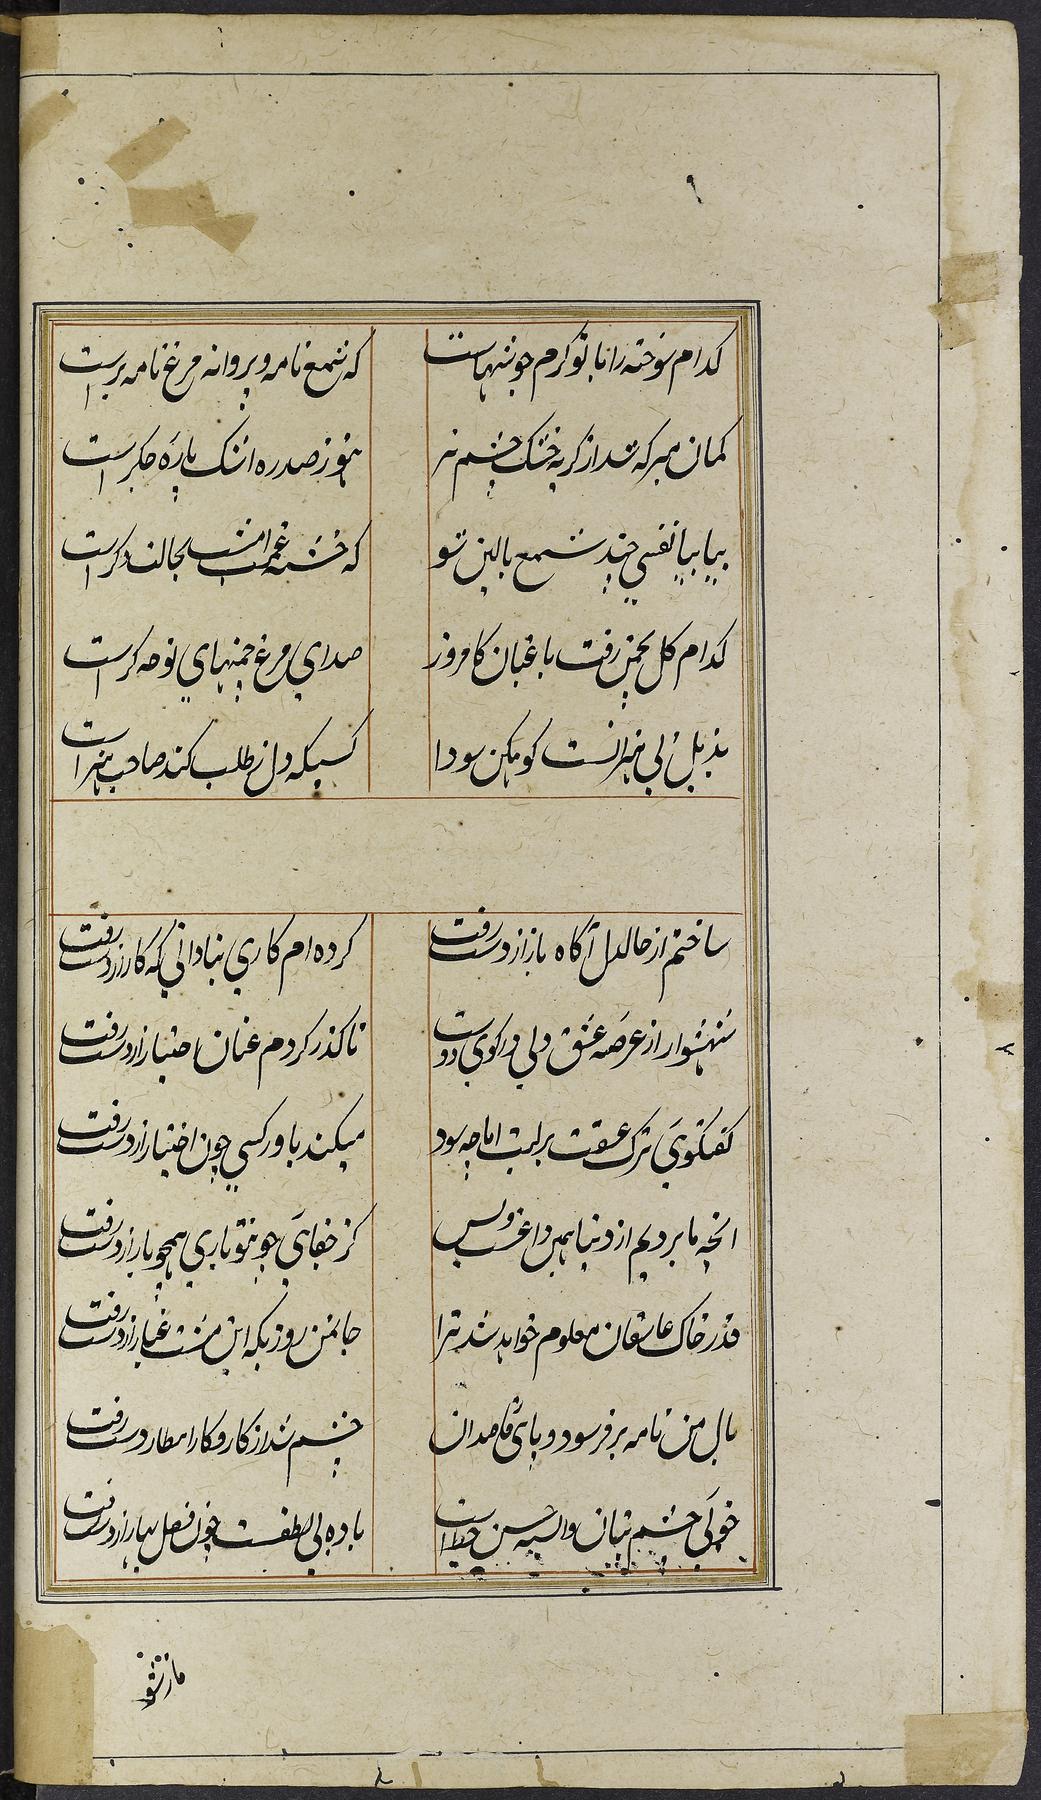 کدام سوخته را با تو کرم جوشیهاست
که شمع نامه و پروانه مرغ نامه برست
کمان مبر که شد از کریه خشک چشم تر
هنوز صد ره اشک پارهٔ جکرست
بیا بیا نفسی چند شمع بالین شو
که خسته غمت امشب بحالت دکرست
کدام کل بچمن رفت باغبان کامروز
صدای مرغ چمنهای نوحه کرست
کو مکن سودا
کسیکه دل ز طلب کند صاحب هنر است
ساختم از حال دل آکاه باز از دست رفت
کرده ام کاری بنادانی که کار از دست رفت
شهسوار از عرصه عشق دلی در کوی دوست
تا کذر کردم عنان اختیار از دست رفت
کفتکوی ترک عشقت بر لبت اما چه سود
میکند باور کسی چون اختیار از دست رفت
انچه ما بردیم از دنیا همین داغست و بس
کز جفای چو تو یاری همچو یار از دست رفت
قدر خاک عاشقان معلوم خواهد شد ترا
جان من روزیکه این مشت غبار از دست رفت
بال من نامه بر فرسود و پای قاصدان
چشم شد از کار و کار از دست رفت
چشم بتان حسن خط است
باده بی لطفست چون فصل بهار از دست رفت